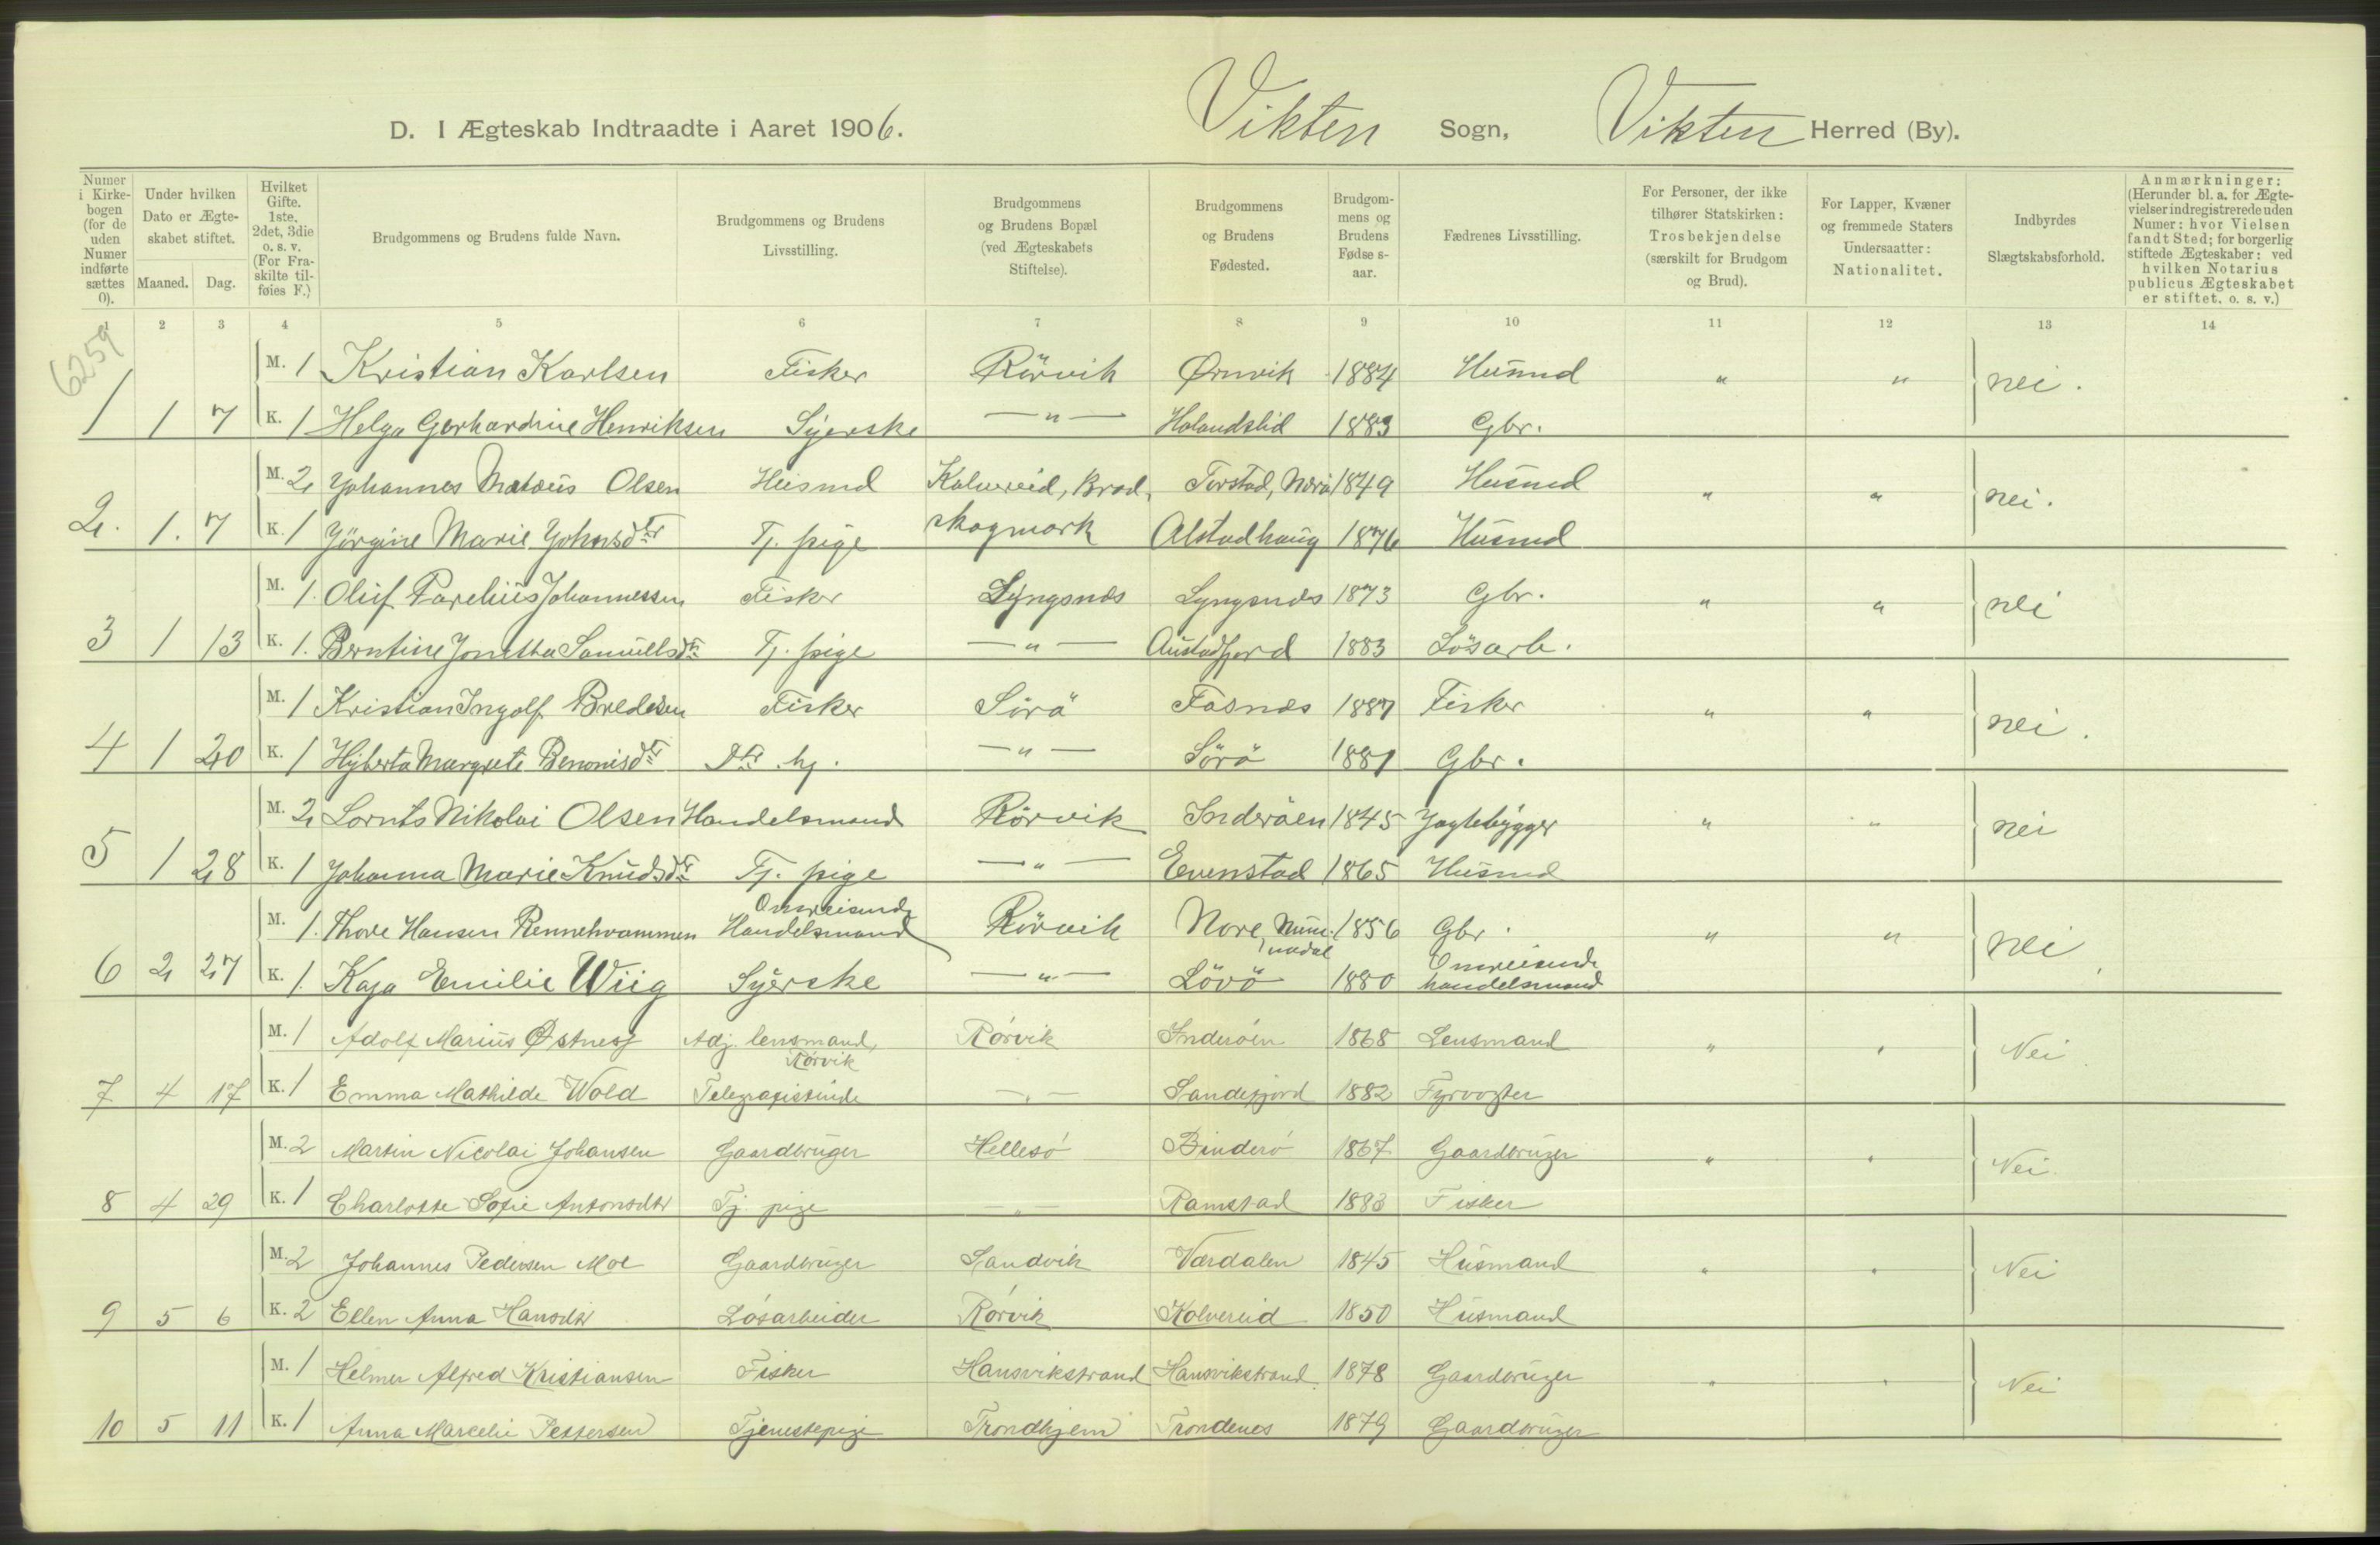 D. I Ægteskab Indtraadte i Aaret 1906. Vikten Sogn, Vikten Herred (By).
Numer i Kirkebogen (for de uden Numer indførte sættes 0). Under hvilken Dato er Ægteskabet stiftet. Maaned. Dag. Hvilket Gifte. 1ste, 2det, 3die o. s. v. (For Fraskilte tilføies F.) Brudgommens og Brudens fulde Navn. Brudgommens og Brudens Livsstilling. Brudgommens og Brudens Bopæl (ved Ægteskabets Stiftelse). Brudgommens og Brudens Fødested. Brudgommens og Brudens Fødselsaar. Fædrenes Livsstilling. For Personer, der ikke tilhører Statskirken: Trosbekjendelse (særskilt for Brudgom og Brud). For Lapper, Kvæner og fremmede Staters Undersaatter: Nationalitet. Indbyrdes Slægtskabsforhold. Anmærkninger: (Herunder bl. a. for Ægtevielser indregistrerede uden Numer: hvor Vielsen fandt Sted; for borgerlig stiftede Ægteskaber: ved hvilken Notarius publicus Ægteskabet er stiftet. o. s. v.)
1 2 3 4 5 6 7 8 9 10 11 12 13 14
6259
M. 1 Kristian Karlsen Fisker Rörvik Ørnvik 1884 Husmd " " nei.
1 1 7 K. 1 Helga Gerhardine Henriksen Syerske — " — Holandslid 1883 Gbr.
M. 2 Johannes Mataus Olsen Husmd Kolvereid, Brod. Torstad, Nærö 1849 Husmd " " nei.
2. 1. 7 K. 1 Jörgine Marie Johnsdtr Tj. pige skogmark Alstadhaug 1876 Husmd
M. 1. Oluf Parelius Johannessen Fisker Lyngsnes Lyngsnes 1873 Gbr. " " nei
3 1 13 K. 1. Berntine Jonetha Samuelsdtr Tj. pige — " — Austadfjord 1883 Lösarb.
M. 1 Kristian Ingolf Bredesen Fisker Sörö Fosnes 1887 Fisker " " nei.
4 1 20 K. 1 Hyberta Margrete Benonisdtr Dtr hj. — " — Sörö 1881 Gbr.
M. 2 Lornts Nikolai Olsen Handelsmand Rörvik Inderöen 1845 Jagtebygger " " nei
5 1 28 K. 1 Johanna Marie Knudsdtr Tj. pige — " — Evenstad 1865 Husmd
M. 1. Thore Hansen Rennehvammen Omreisende Handelsmand Rörvik Nore, Nummedal 1856 Gbr. " " nei
6 2 27 K. 1. Kaja Emilie Wiig Syerske — " — Lövö 1880 Omreisende handelsmand
M. 1 Adolf Marius Østnes Adj. lensmand, Rörvik Rörvik Inderöen 1868 Lensmand " " Nei
7 4 17 K. 1 Emma Mathilde Wold Telegrafistinde — " — Sandefjord 1882 Fyrvogter
M. 2 Martin Nicolai Johansen Gaardbruger Hellesö Binderö 1867 Gaardbruger " " Nei.
8 4 29 K. 1 Charlotte Sofie Antonsdtr Tj. pige — " — Ramstad 1883 Fisker
M. 2 Johannes Pedersen Moe Gaardbruger Sandvik Værdalen 1845 Husmand " " Nei
9 5 6 K. 2 Ellen Anna Hansdtr Lösarbeider Rörvik Kolvereid 1850 Husmand
M. 1 Helmer Alfred Kristiansen Fisker Hansvikstrand Hansvikstrand 1878 Gaardbruger " " Nei
10 5 11 K. 1 Anna Marcelie Pettersen Tjenestepige Trondhjem Trondenes 1879 Gaardbruger